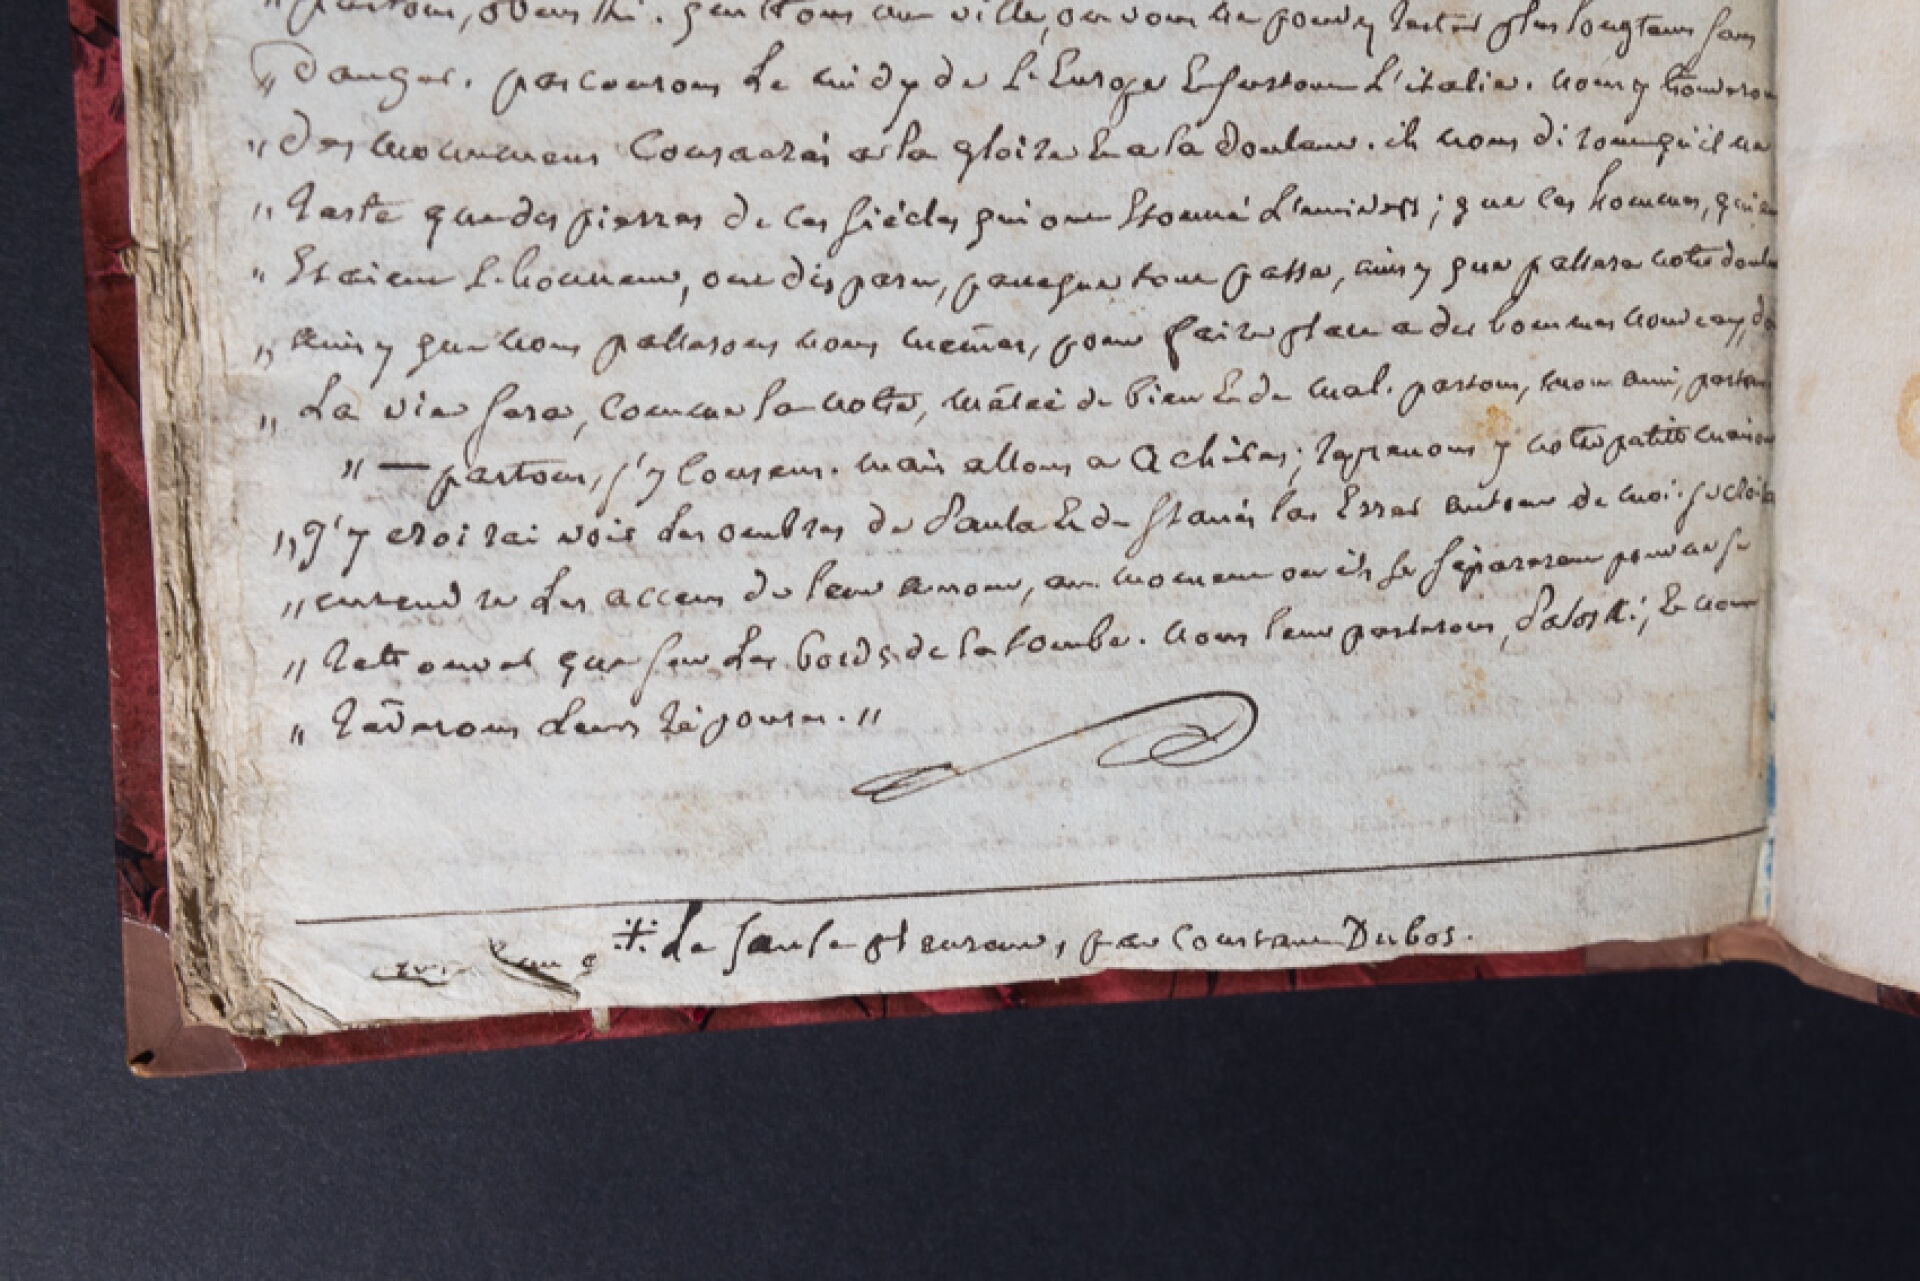 " partons, . quittons une ville, où vous ne pouvez rester plus longtems sans
" danger. parcourons le midy de L'Europe Et surtout L'italie. nous y trouverons
" des monumens Consacrés a la gloire Et a la douleur. ils nous diront qu'il ne
" reste que des pierres de ces siécles qui ont Etonné L'univers ; que les hommes, qui en
" Etaient L'honneur, ont disparu, parceque tout passe, ainsy que passera notre douleur
" ainsy que nous passerons nous mêmes, pour faire place a des hommes nouveaux, dont
" La vie sera, comme la notre, mêlée de bien Et de mal. partons, mon ami, partons
" — partons, j'y consens. mais allons a ; reprenons y notre petite maison
" J'y croirai voir les ombres de Paula Et de Stanislas Errer autour de moi.
" entendre les accens de leur amour, au moment où ils se séparerent pour ne se
" retrouver que sur les bords de la tombe. nous leur parlerons, ; Et nous
" rêverons leurs réponses. "
⁜ Le saule pleureur, par Constant Dubos.